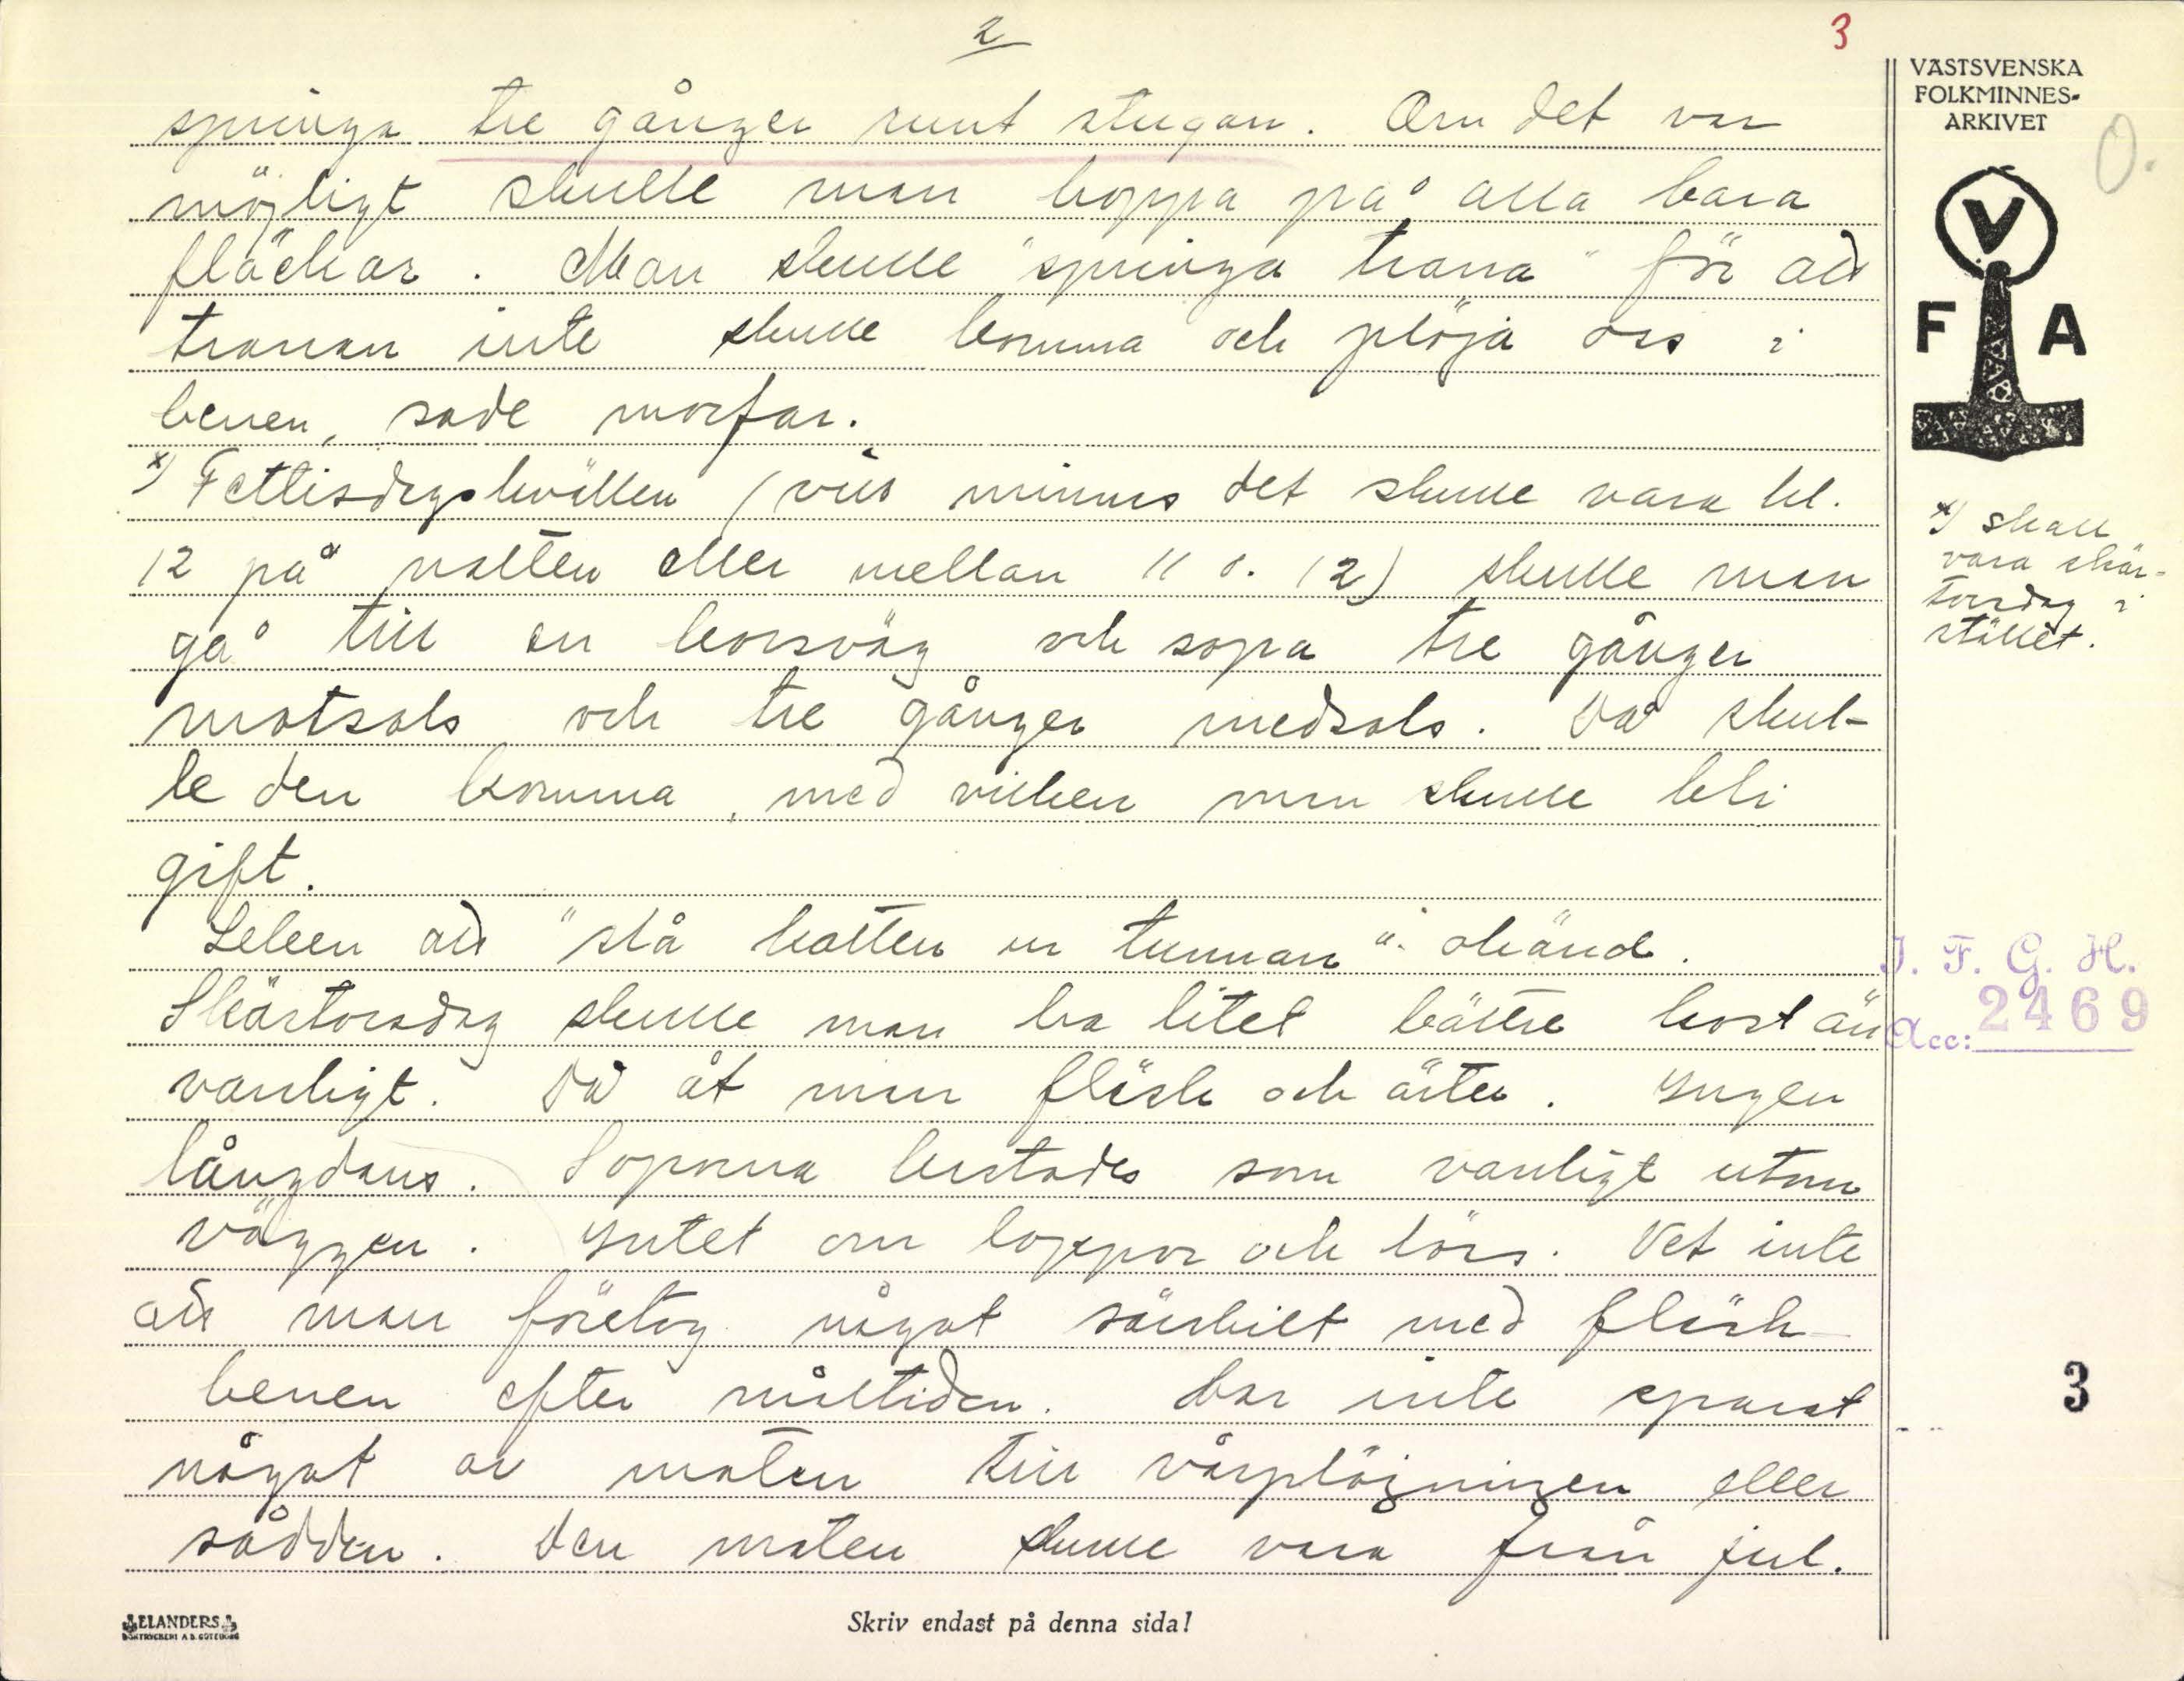 2
3
springa tre gånger runt stugan. Om det var
möjligt skulle man hoppa på alla bara
fläckar. Man skulle "springa trana" för att
tranan inte skulle komma och plöja oss i
benen, sade morfar.
x) Fettisdagskvällen (vill minnas det skulle vara kl.
12 på natten eller mellan 11 o. 12) skulle man
gå till en korsväg och sopa tre gånger
motsols och tre gånger medsols. Då skul-
le den komma, med vilken man skulle bli
gift.
Leken att "slå katten ur tunnan" okänd.
Skärtorsdag skulle man ha litet bättre kost än
vanligt. Då åt man fläsk och ärter. Ingen
långdans. Soporna kastades som vanligt utom
väggen. Intet om loppor och löss. Vet inte
att man företog något särskilt med fläsk-
benen efter måltiden. Har inte sparat
något av maten till vårplöjningen eller
sådden. Den maten skulle vara från jul.
VÄSTSVENSKA
FOLKMINNES-
ARKIVET
O.
V
F A
x) skall
vara skär-
torsdag i
stället.
I. F. G. H.
Acc: 2469
3
ELANDERS
BOKTRYCKERI A.B. GÖTEBORG
Skriv endast på denna sida!